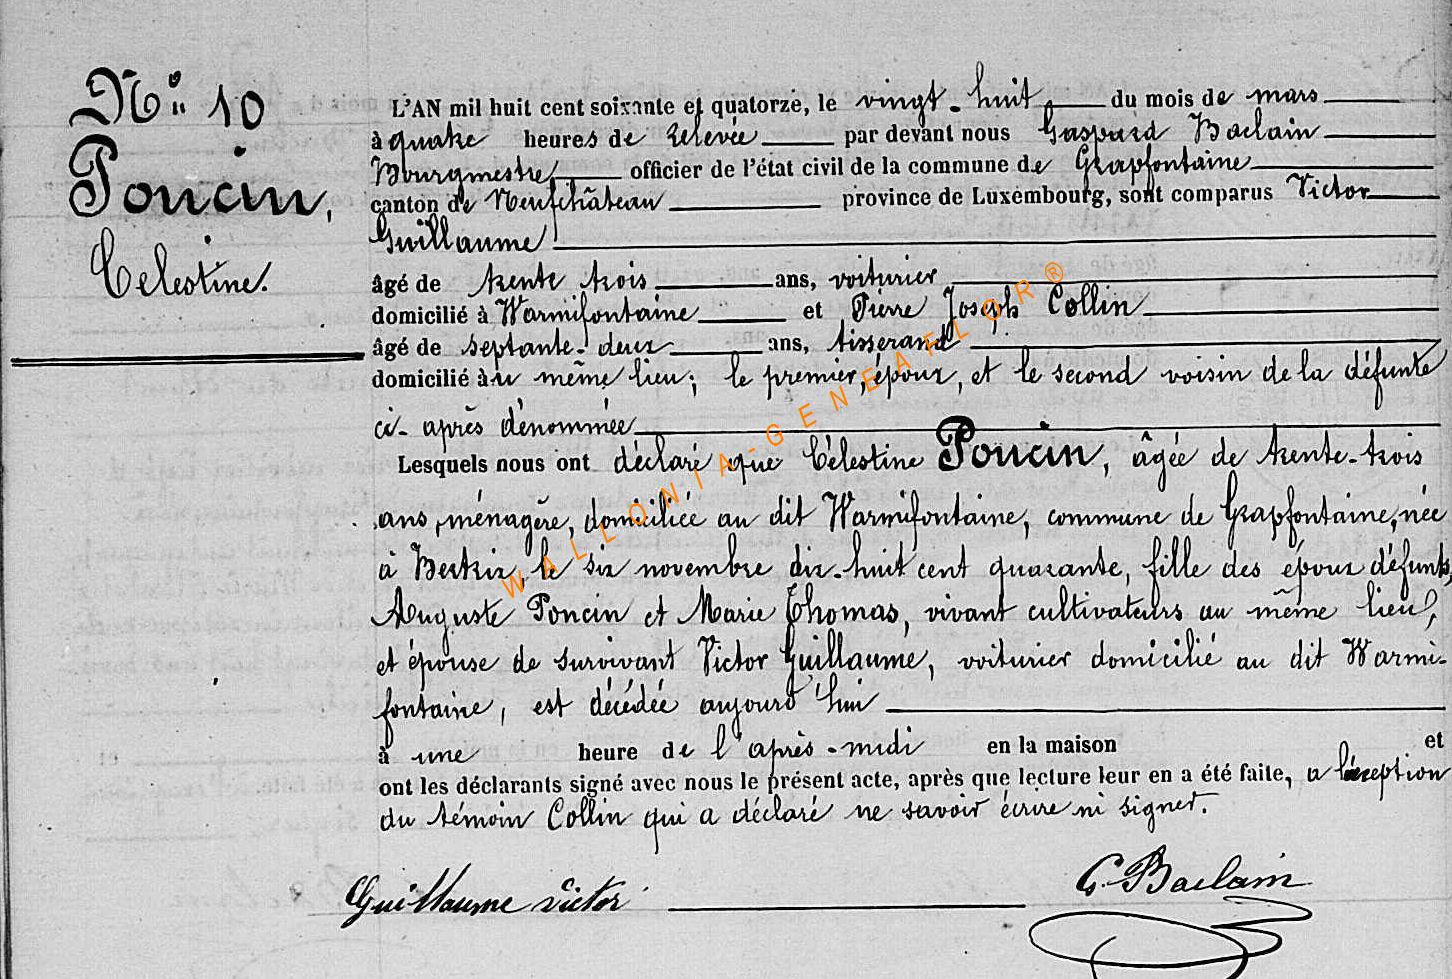 N° 10
Poncin,
Célestine.
L'AN mil huit cent soixante et quatorze, le vingt-huit du mois de mars
à quatre heures de relevée par devant nous Gaspard Baclain
Bourgmestre, officier de l'état civil de la commune de Grapfontaine
canton de Neufchâteau province de Luxembourg, sont comparus Victor
Guillaume
âgé de trente trois ans, voiturier
domicilié à Warmifontaine et Pierre Joseph Collin
âgé de septante-deux ans, tisserand
domicilié au même lieu; le premier, époux, et le second voisin de la défunte
ci-après dénommée
Lesquels nous ont déclaré que Célestine Poncin, âgée de trente-trois
ans, ménagère, domiciliée au dit Warmifontaine, commune de Grapfontaine, née
à Bertrix, le six novembre dix-huit cent quarante, fille des époux défunts,
Auguste Poncin et Marie Thomas, vivant cultivateurs au même lieu,
et épouse de survivant Victor Guillaume, voiturier domicilié au dit Warmi-
fontaine, est décédée aujourd'hui
à une heure de l'après-midi en la maison et
ont les déclarants signé avec nous le présent acte, après que lecture leur en a été faite, a l'exception
du témoin Collin qui a déclaré ne savoir écrire ni signer.
Guillaume Victor G. Baclain
WALLONIA-GENEAFLOR®